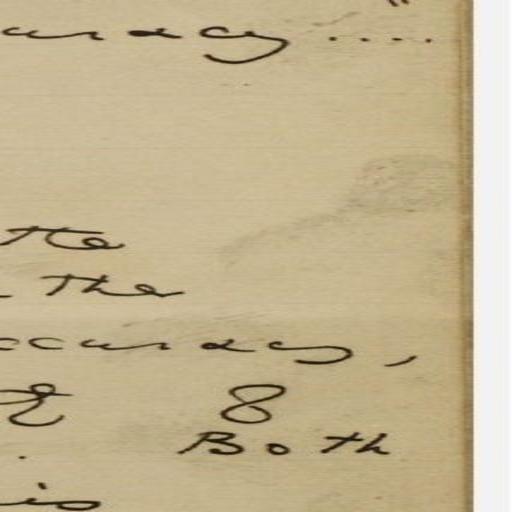 uracy ....."
the
the
ccuracy,
& 8
Both
is